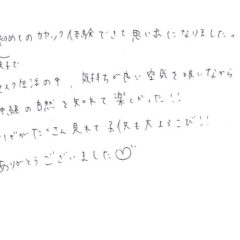 初めてのカヤック体験できて思い出になりました。
マスク生活の中、気持ちが良い空気を吸いながら
沖縄の自然を知れて楽しかった!!
がたくさん見れて子供も大よろこび!!
ありがとうございました♡